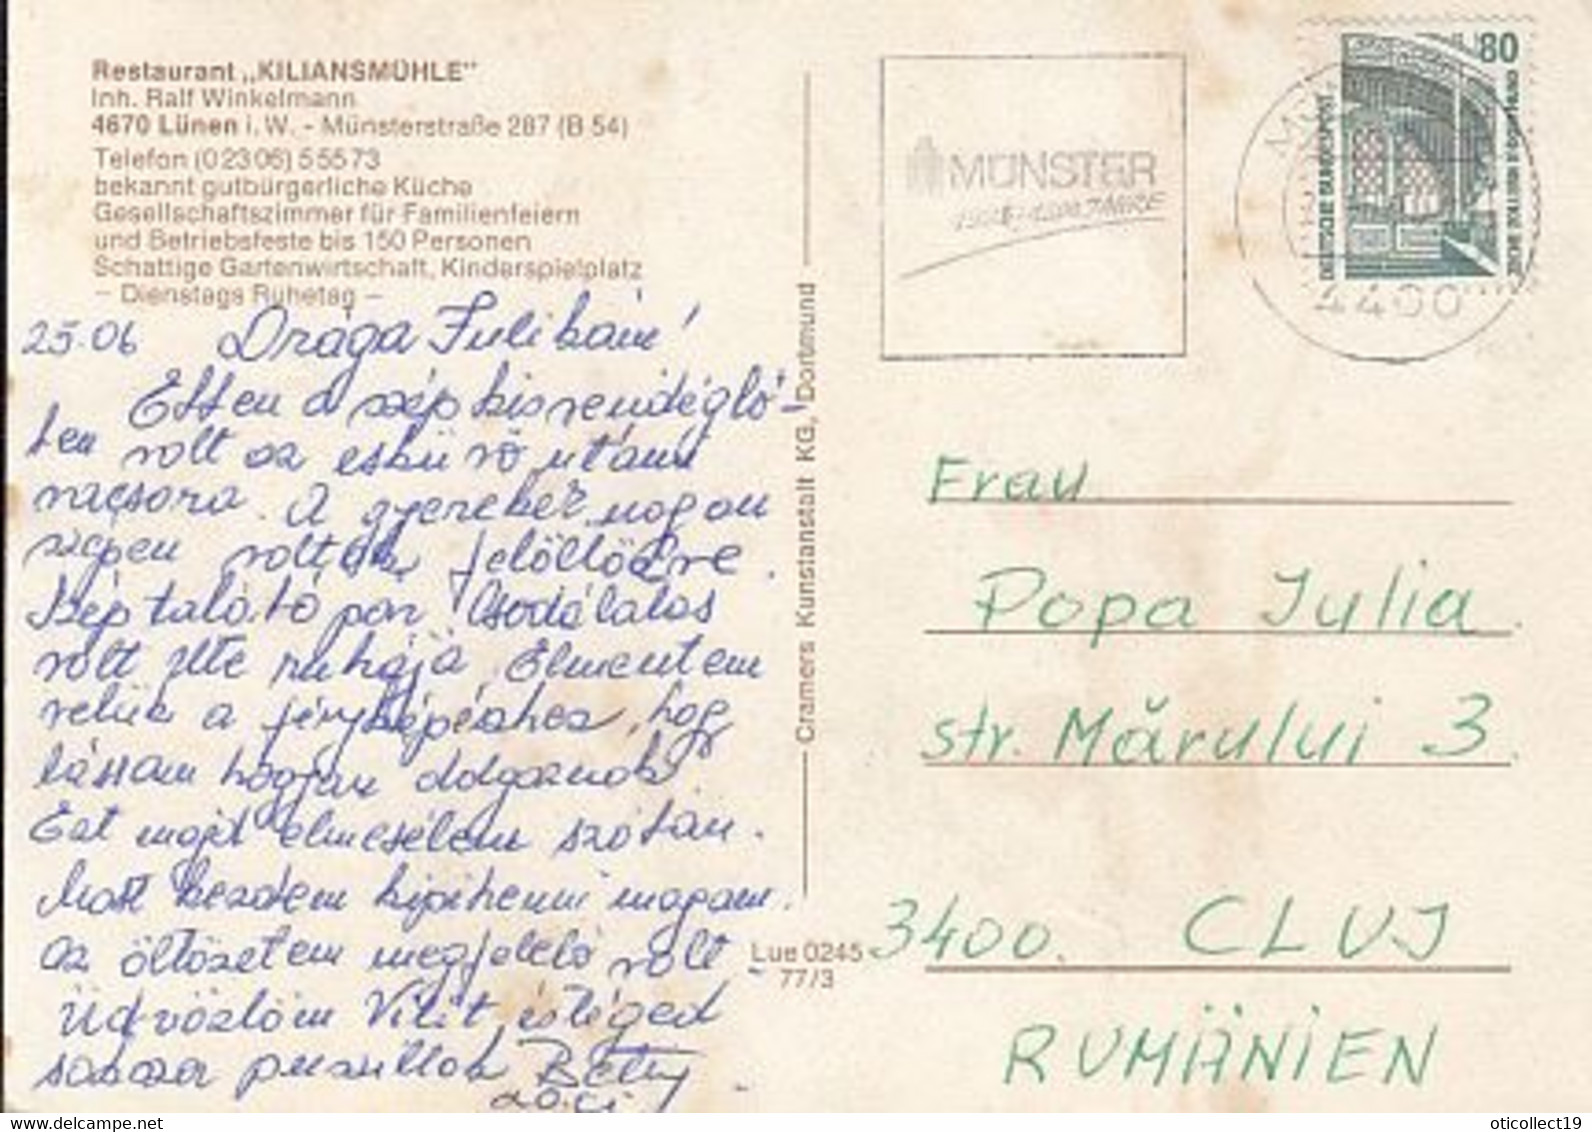 Restaurant „KILIANSMÜHLE"
Inh. Ralf Winkelmann
4670 Lünen i. W. - Münsterstraße 287 (B 54)
Telefon (0 23 06) 5 55 73
bekannt gutbürgerliche Küche
Gesellschaftszimmer für Familienfeiern
und Betriebsfeste bis 150 Personen
Schattige Gartenwirtschaft, Kinderspielplatz
– Dienstags Ruhetag –
25.06 Drága Julikám!
Ebben a szép kisvendégló-
ben volt az eskü vö utáni
vacsora. A gyerekek nagyon
szépen voltak felöltözve.
Szép találó pár. Csodálatos
volt Ute ruhája. Elmentem
velük a fényképészhez, hogy
lássam hogyan dolgoznak
Ezt majd elmesélem szóban.
Most kezdem kipihenni magam.
az öltözetem megfelelő volt
Üdvözlöm Vilit, és Téged
sokszor puszillak Betty
Cramers Kunstanstalt KG, Dortmund
Lue 0245
77/3
MÜNSTER
JAHRE
4400
80
DEUTSCHE BUNDESPOST
ZECHE ZOLLERN II DORTMUND
Frau
Popa Julia
str. Mărului 3.
3400. CLUJ
RUMÄNIEN
oticollect19